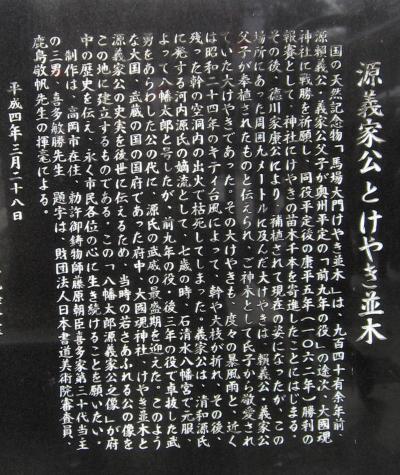 源義家公とけやき並木
国の天然記念物「馬場大門けやき並木」は、九百四十有余年前、
源頼義公・義家公父子が奥州平定の「前九年の役」の途次、大國魂
神社に戦勝を祈願し、同役平定後の康平五年（一〇六二年）勝利の
報賽として、神社にけやきの苗木千本を寄進したことにはじまる。
その後、徳川家康公により、補植されて現在の姿になったが、この
場所にあった周囲九メートルに及んだ大けやきは、頼義公・義家公
父子が奉植されたものと伝えられ、ご神木として氏子から敬愛され
ていた大けやきであった。その大けやきも、度々の暴風雨と、近く
は昭和二十四年のキティ台風によって、幹や大枝が折れ、その後、
残った幹の空洞内の出火で枯死してしまった。義家公は、清和源氏
に発する河内源氏の嫡流として、七歳の時、石清水八幡宮で元服、
よって八幡太郎と号したが、前九年の役、後三年の役で卓抜した武
勇をあらわした公の代に、源氏の武威の最盛期を迎えた。このよう
な大国、武蔵の国の国府であった府中、大國魂神社、けやき並木と
源義家公の史実を後世に伝えるため、当時の若さあふれる公の像を
この地に建立するものである。この「八幡太郎源義家公之像」が府
中の歴史を伝え、永く市民各位の心に生き続けることを願いたい。
制作は、高岡市在住、勅許御鋳物師藤原朝臣喜多家第三十代当主
の三男、喜多敏勝先生、題字は、財団法人日本書道美術院審査員、
鹿島敬帆先生の揮毫による。
平成四年三月二十八日